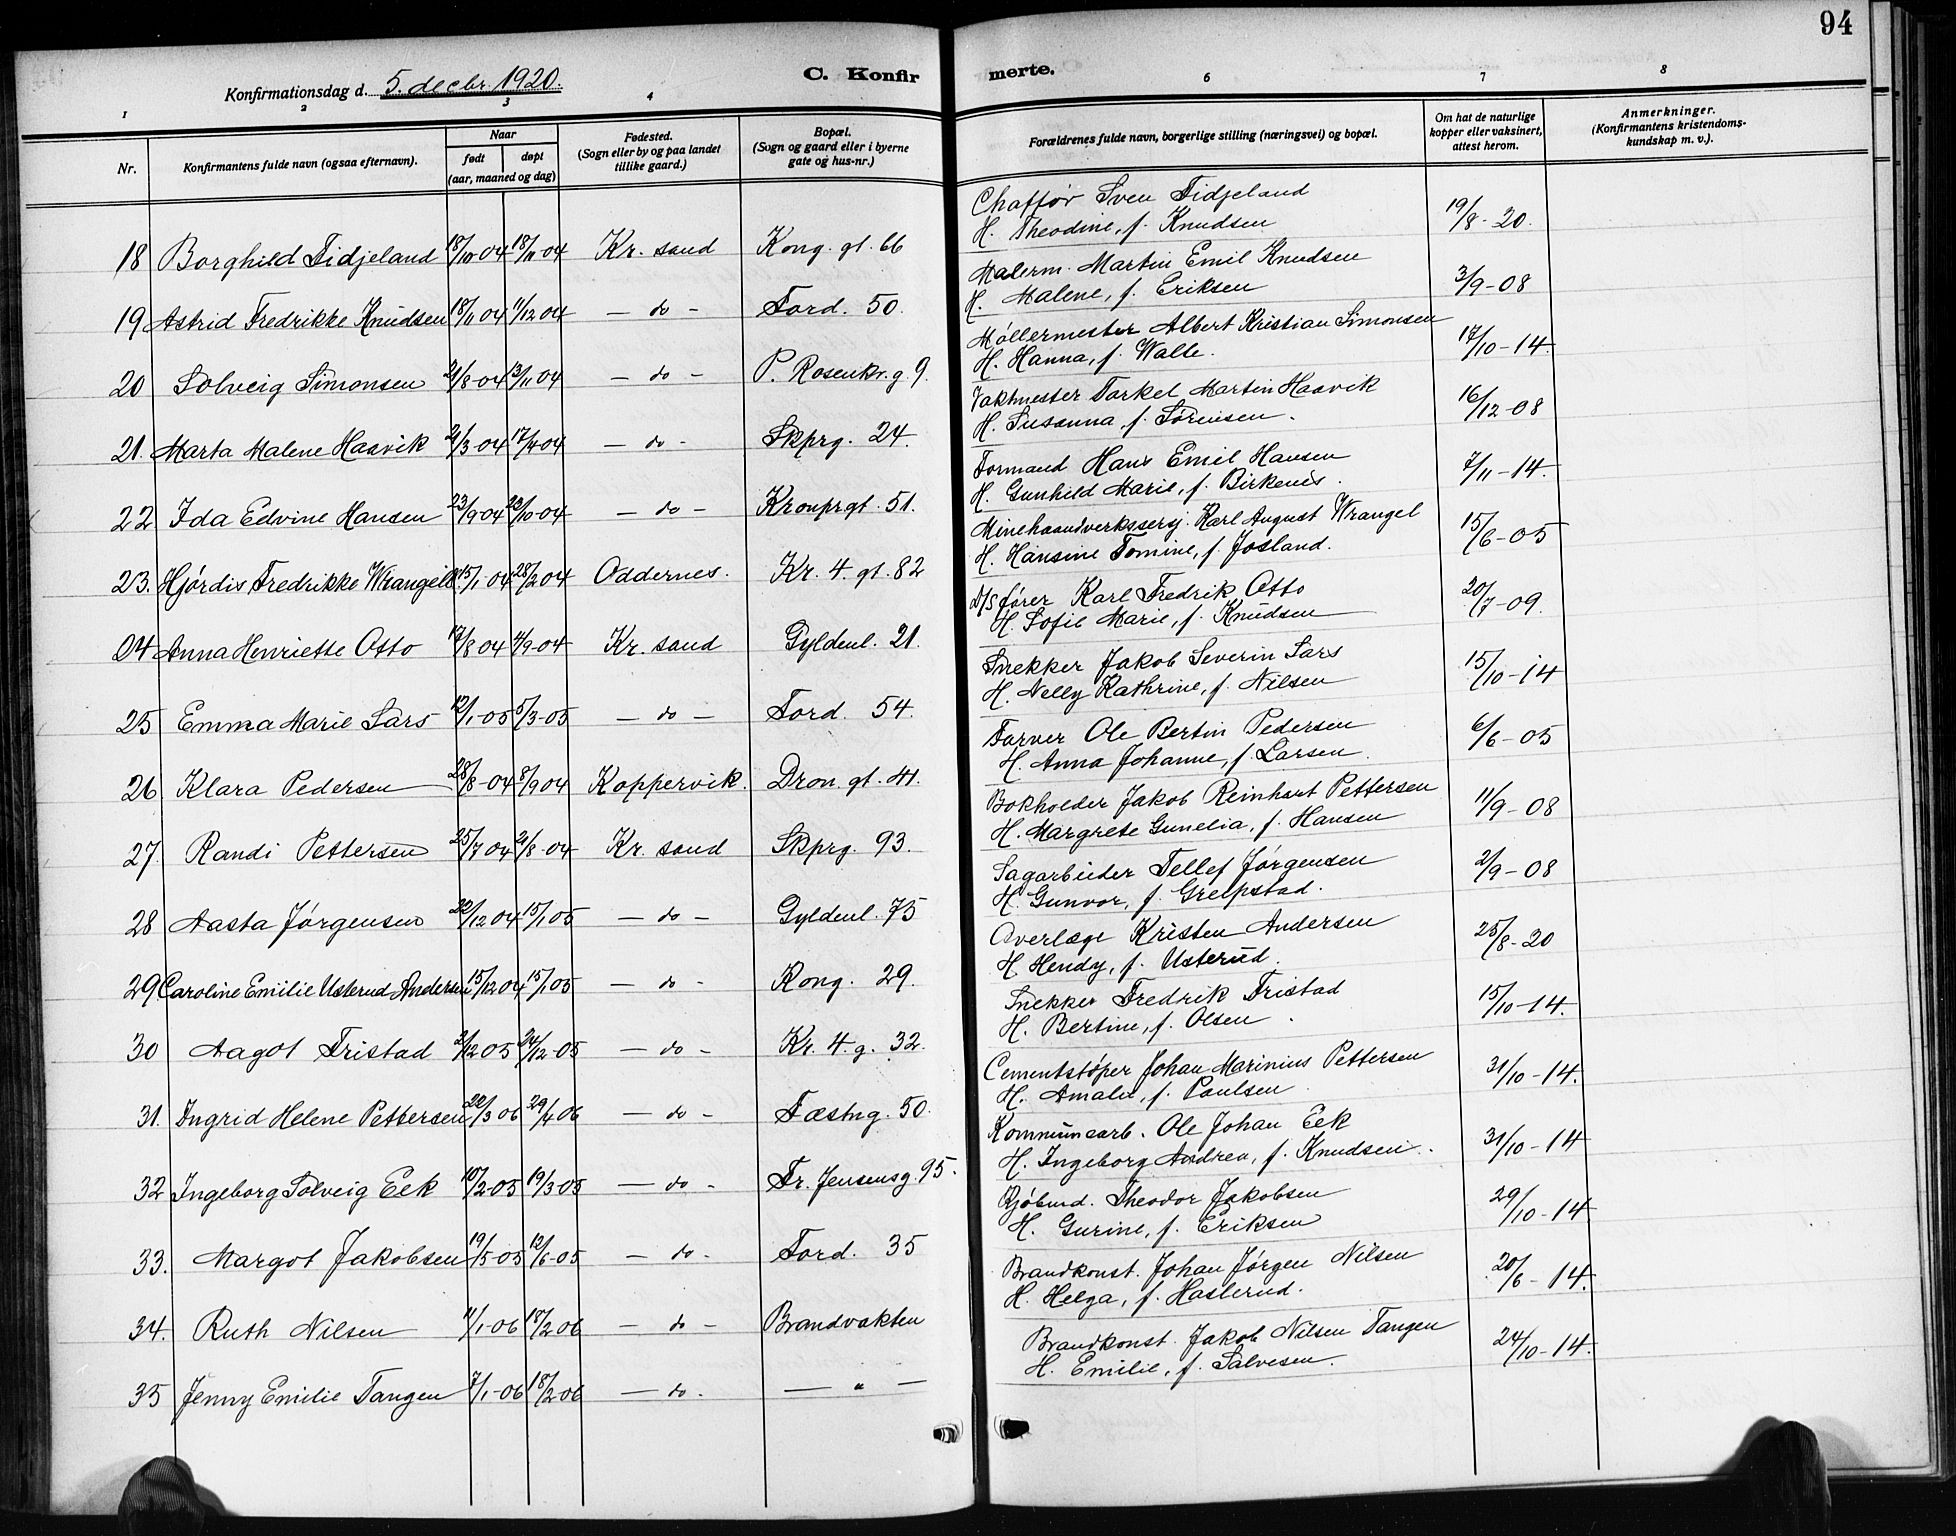 94
C. Konfirmerte.
Konfirmationsdag d. 5. decbr. 1920.
1 2 3 4 6 7 8
Nr.
Konfirmantens fulde navn (ogsaa efternavn).
Naar
født døpt
(aar, maaned og dag)
Fødested.
(Sogn eller by og paa landet
tillike gaard.)
Bopæl.
(Sogn og gaard eller i byerne
gate og hus-nr.)
Forældrenes fulde navn, borgerlige stilling (næringsvei) og bopæl.
Om hat de naturlige
kopper eller vaksinert,
attest herom.
Anmerkninger.
(Konfirmantens kristendoms-
kundskap m. v.).
Chaffør Sven Tidjeland
18 Borghild Tidjeland 18/10 04 18/11 04 Kr. sand Kong. gt. 66 H. Theodine, f. Knudsen 19/8-20.
Malerm. Martin Emil Knudsen
19 Astrid Fredrikke Knudsen 18/11 04 11/12 04 — do - Tord. 50. H. Malene, f. Eriksen 3/9-08
Møllermester Albert Kristian Simonsen
20 Solveig Simonsen 21/8-04 13/11 04 — do - P. Rosenkr. g. 9. H. Hanna, f. Walle. 17/10-14.
Vaktmester Torkel Martin Haavik
21. Marta Malene Haavik 21/3 04 17/4 04 — do - Skprg. 24. H. Susanna, f. Sørensen. 16/12-08
Formand Hans Emil Hansen
22 Ida Edvine Hansen 23/9-04 23/10-04 — do - Kronprgt. 51. H. Gunhild Marie, f. Birkenes. 7/11-14.
Minehaandverkssersj. Karl August Wrangel
23. Hjørdis Fredrikke Wrangell 15/1 04 28/2 04 Oddernes. Kr. 4. gt. 82 H. Hansine Tomine, f. Josland. 15/6-05
D/S fører Karl Fredrik Otto
24 Anna Henriette Otto 17/8 04 4/9-04 Kr. sand Gyldenl. 21. H. Sofie Marie, f. Knudsen 20/7-09.
Snekker Jakob Severin Sars
25 Emma Marie Sars 12/1-05 5/3-05 — do — Tord. 54. H. Nelly Kathrine, f. Nilsen 15/10-14
Farver Ole Bertin Pedersen
26 Klara Pedersen 28/8-04 8/9 04 Koppervik. Dron. gt. 41. H. Anna Johanne, f. Larsen. 6/6-05
Bokholder Jakob Reinhart Pettersen
27. Randi Pettersen 25/7 04 21/8-04 Kr. sand Skprg. 93. H. Margrete Gunelia, f. Hansen 11/9-08
Sagarbeider Tellef Jørgensen
28 Aasta Jørgensen 22/12 04 15/1 05 — do — Gyldenl. 75 H. Gunvor, f. Greipstad. 2/9-08
Overlæge Kristen Andersen
29 Caroline Emilie Usterud Andersen 15/12 04 15/1 05 — do - Kong. 29. H. Hendy, f. Usterud. 25/8-20
Snekker Fredrik Tristad
30 Aagot Tristad 2/12 05 24/12-05 — do - Kr. 4. g. 32. H. Bertine, f. Olsen. 15/10-14.
Cementstøper Johan Marinius Pettersen
31. Ingrid Helene Pettersen 22/3 06 29/4 06 — do - Fæstng. 50. H. Amalie, f. Paulsen 31/10-14.
Kommunearb. Ole Johan Eek
32 Ingeborg Solveig Eek 10/2-05 19/3-05 — do - Fr. Jensensg. 95. H. Ingeborg Andrea, f. Knudsen. 31/10-14
Kjøbmd. Theodor Jakobsen
33. Margot Jakobsen 19/5-05 12/6-05 — do - Tord. 35 H. Gurine, f. Eriksen 29/10-14
Brandkonst. Johan Jørgen Nilsen
34. Ruth Nilsen 11/1-06 18/2 06 — do - Brandvakten H. Helga, f. Haslerud. 20/6-14.
Brandkonst. Jakob Nilsen Tangen
35 Jenny Emilie Tangen 7/1-06 18/2 06 — do - — " — H. Emilie, f. Salvesen. 24/10-14.